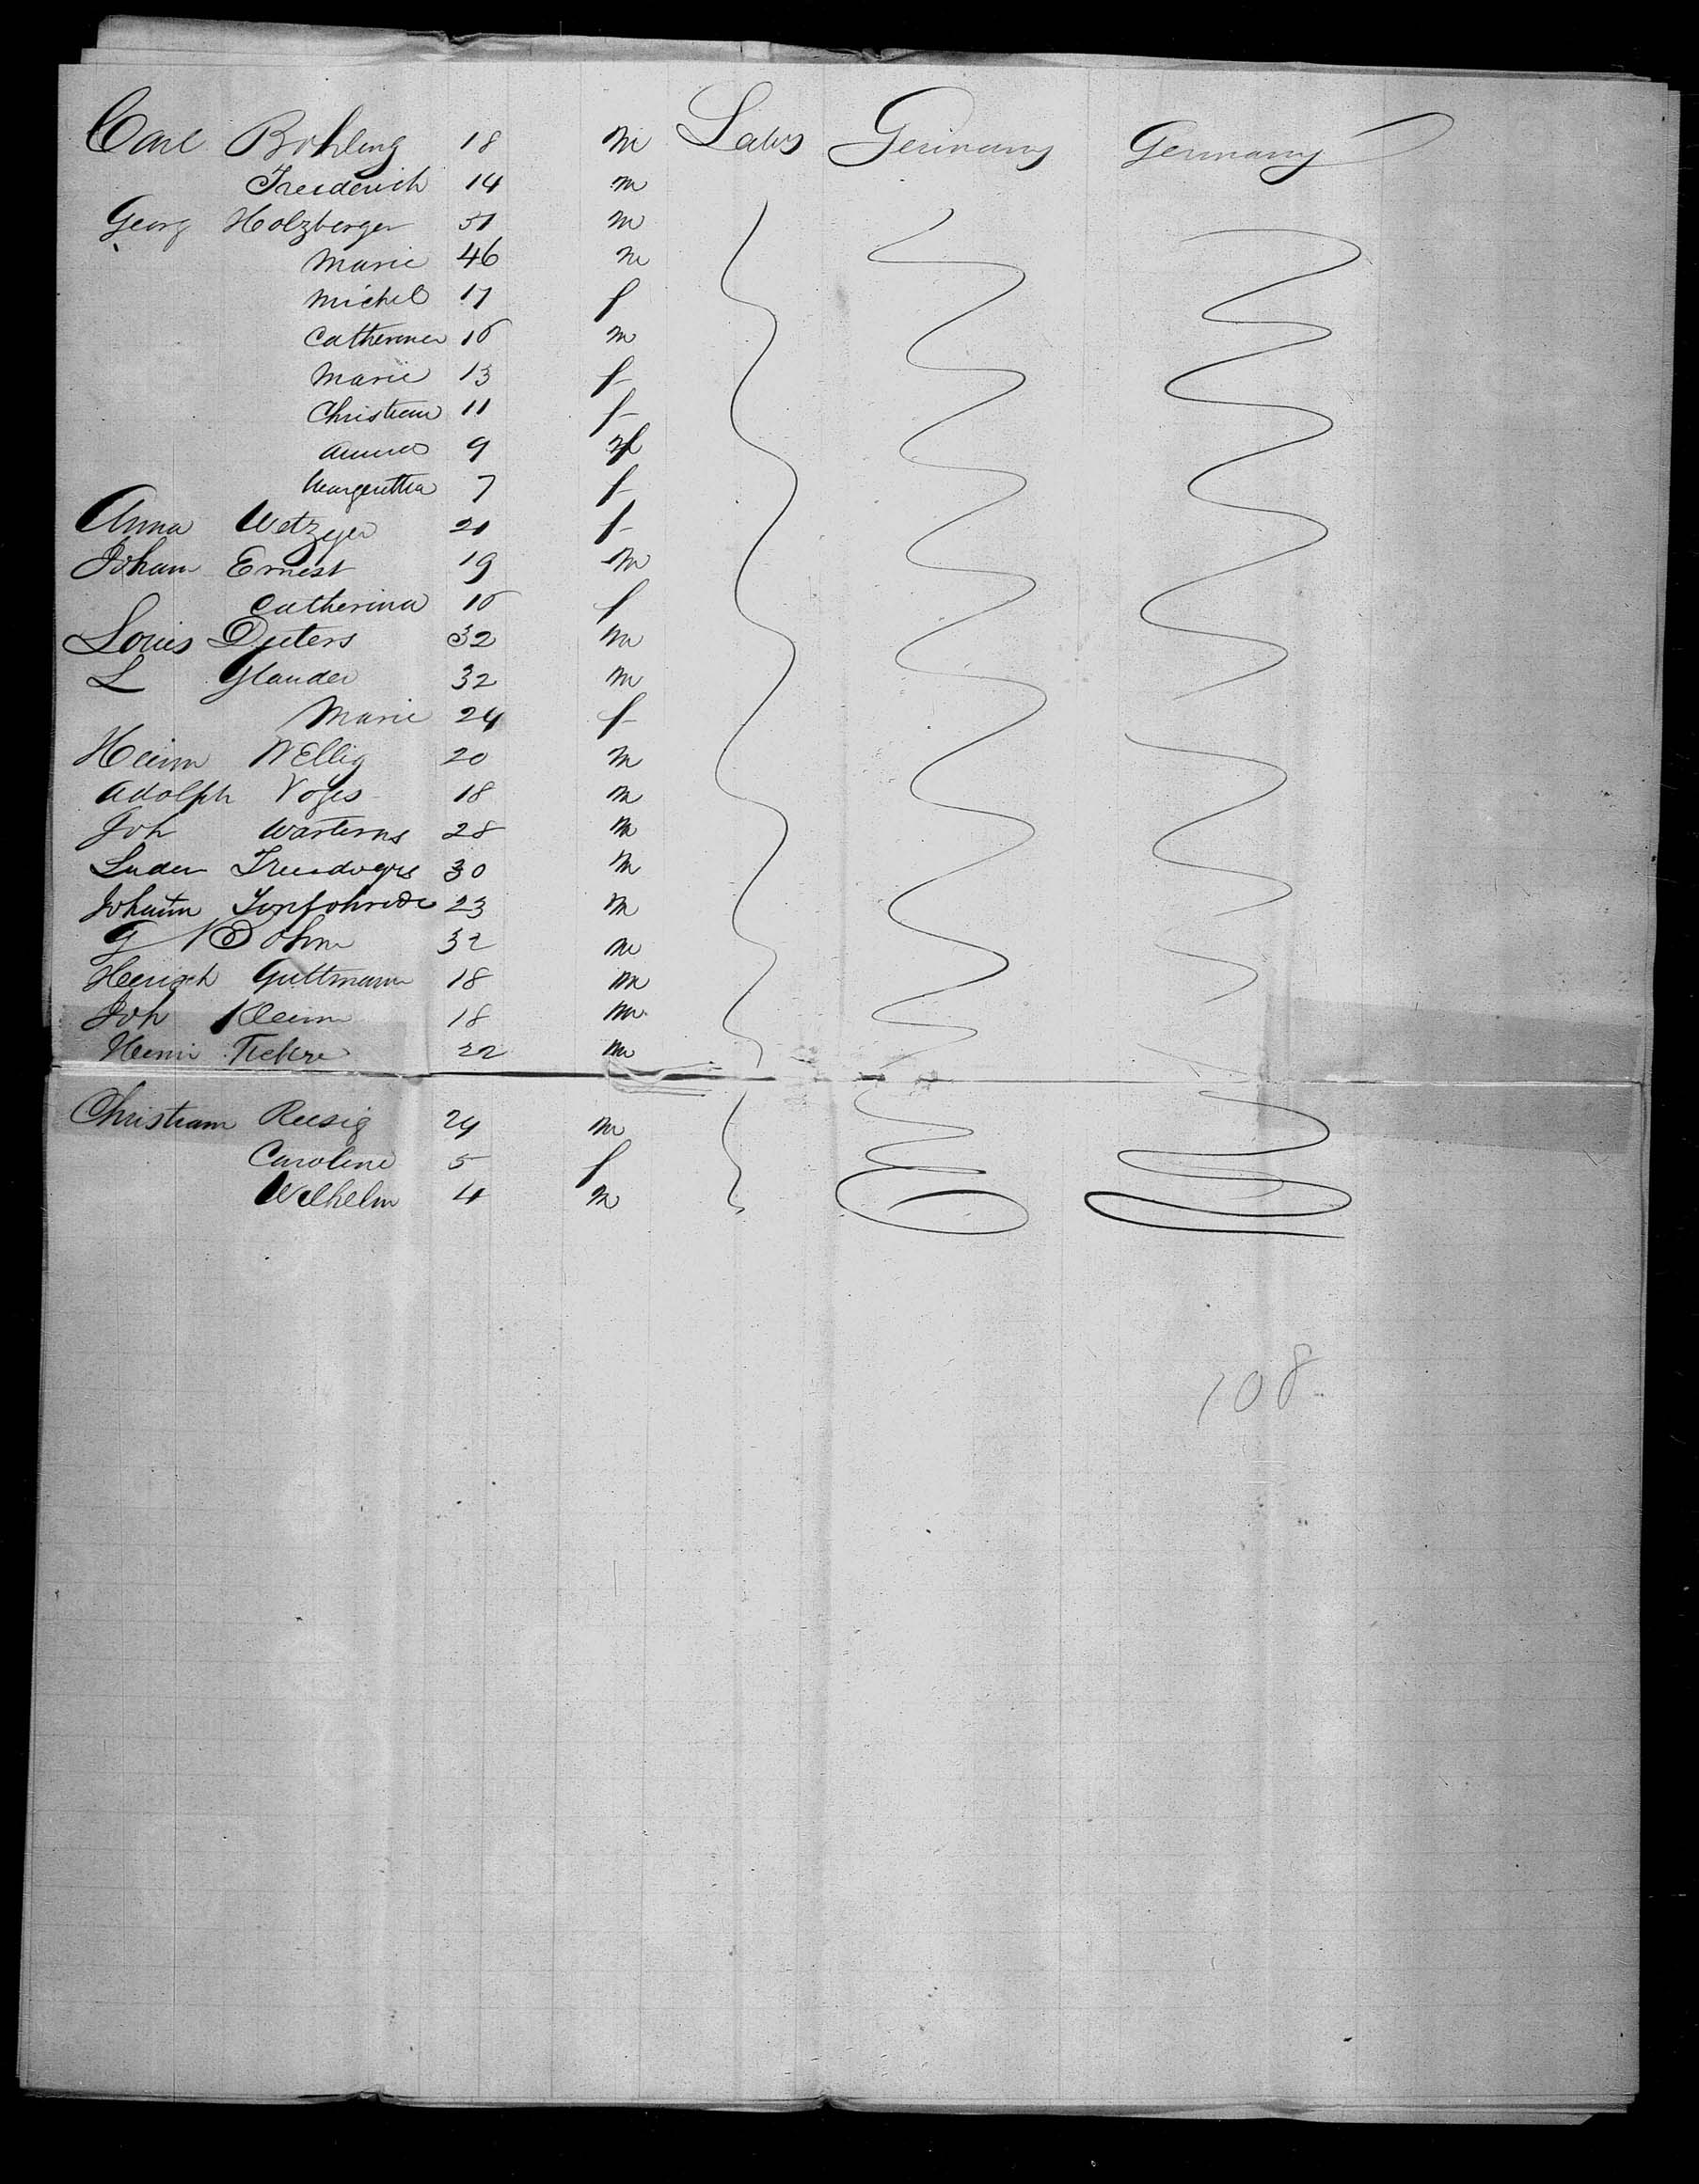 Carl Bohling 18 m Labs Germany Germany
Freiderich 14 m
Georg Holzberger 51 m
Marie 46 m
Michel 17 f
Catherina 16 m
Marie 13 f
Christian 11 f
Anna 9 f
Margeritha 7 f
Anna Wetzyer 21 f
Joham Ernest 19 m
Catherina 16 f
Louis Dieters 32 m
L Glander 32 m
Marie 24 f
Heinr Wellig 20 m
Adolph Voges 18 m
Joh Warterns 28 m
Luder 30 m
Johann 23 m
G Dohm 32 m
Heinrich Guttmann 18 m
Joh Klein 18 m
Heinr 22 m
Christiam Reesig 24 m
Caroline 5 f
Wilhelm 4 m
108